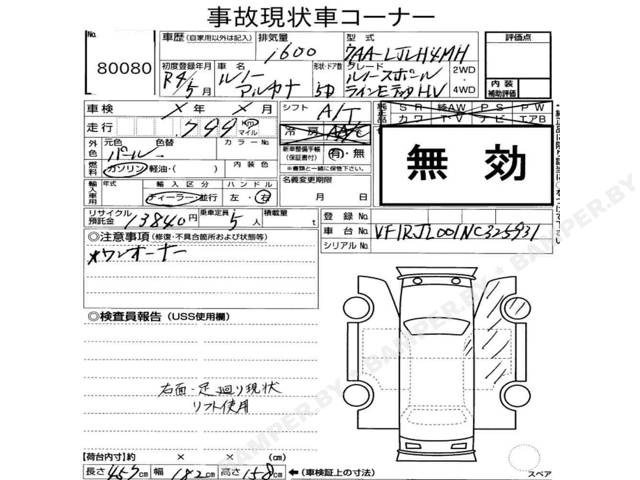 事故現状車コーナー
No.
80080
車歴 (自家用以外は記入)
排気量
1600
型式
7AA-LJLH4MH
評価点
初度登録年月
R4/5月
車名
ルノー アルカナ
形状・ドア数
5D
グレード
ルノースポール
ラインEテックHV
2WD・4WD
内装
補助評価
車検 × 年 × 月
走行 799 km マイル
シフト
A/T
冷房
AAC
純正品
SR 続AW PS PW
カワ TV ナビ エアB
無効
外色
元色 色替
パール
カラーNo.
燃料
ガソリン・軽油・( )
内装色
新車整備手帳
(保証書付)
有・無
※書類と一緒に保管下さい。
輸入車用
年式
輸入区分
ディーラー・並行
ハンドル
左・右
名義変更期限
月 日
リサイクル預託金
13840円
乗車定員
5人
積載量
t
登録No.
車台No.
VF1RJL001NC325931
シリアルNo.
◎注意事項 (修復・不具合箇所および状態等)
メワンオーナー
◎検査員報告 (USS使用欄)
右面・足廻り現状
リフト使用
【荷台内寸】約 × × (cm)
長さ 457cm 幅 182cm 高さ 158cm ←(車検証上の寸法)
スペア
BAMPER.BY • BAMPER.BY • BAMPER.BY